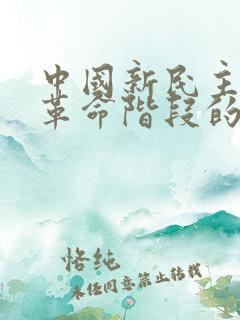 中國新民主
革命階段的
恪純
未经同意禁止转载